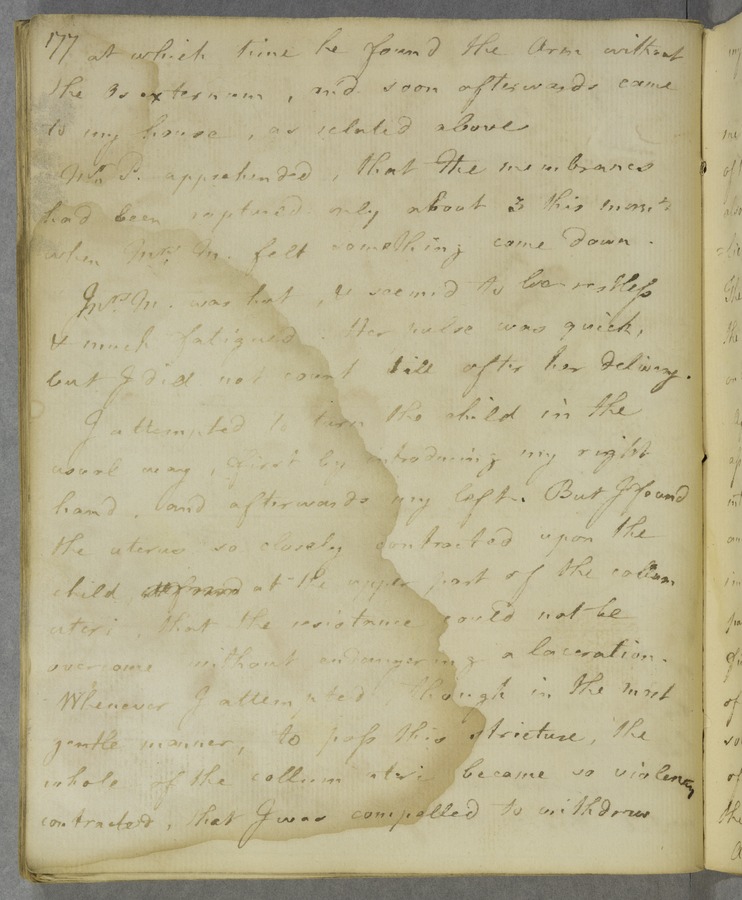 177 at which time he found the Arm without
the Os externum, and soon afterwards came
to my house, as related above
Mr. P. apprehended, that the membranes
had been ruptured only about 3 this morng
when Mrs. M. felt something come down.
Mrs. M. was hot, & seemed to be restless
& much fatigued. Her pulse was quick,
but I did not count till after her delivery.
I attempted to turn the child in the
usual way, first by introducing my right
hand, and afterwards my left. But I found
the uterus so closely contracted upon the
child, at the upper part of the collum
uteri, that the resistance could not be
overcome without endangering a laceration.
Whenever I attempted though in the most
gentle manner, to pass this stricture, the
whole of the collum uteri became so violently
contracted, that I was compelled to withdraw